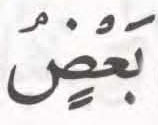 بَعْضٍُ